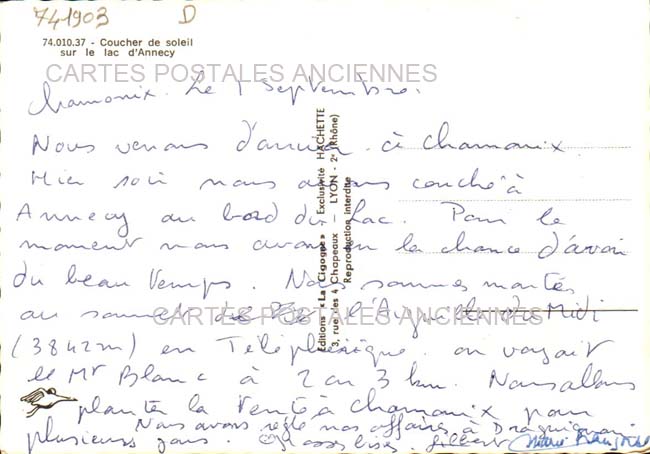 741903 D
74.010.37 - Coucher de soleil
sur le lac d'Annecy
CARTES POSTALES ANCIENNES
Chamonix. Le 1 Septembre.
Nous venons d'arriver à Chamonix.
Hier soir nous avons couché à
Annecy au bord du Lac. Pour le
moment nous avons eu la chance d'avoir
du beau temps. Nous sommes montés
au sommet de l'Aiguille du Midi
CARTES POSTALES ANCIENNES
(3842m) en Téléphérique. on voyait
le Mt Blanc à 2 ou 3 km. Nous allons
planter la tente à Chamonix pour
plusieurs jours.
Nous avons réglé nos affaires à Draguignan
Gilbert
Editions « La Cigogne » - Exclusivité HACHETTE
3, rue des 4 Chapeaux - LYON - 2e (Rhône)
Reproduction interdite